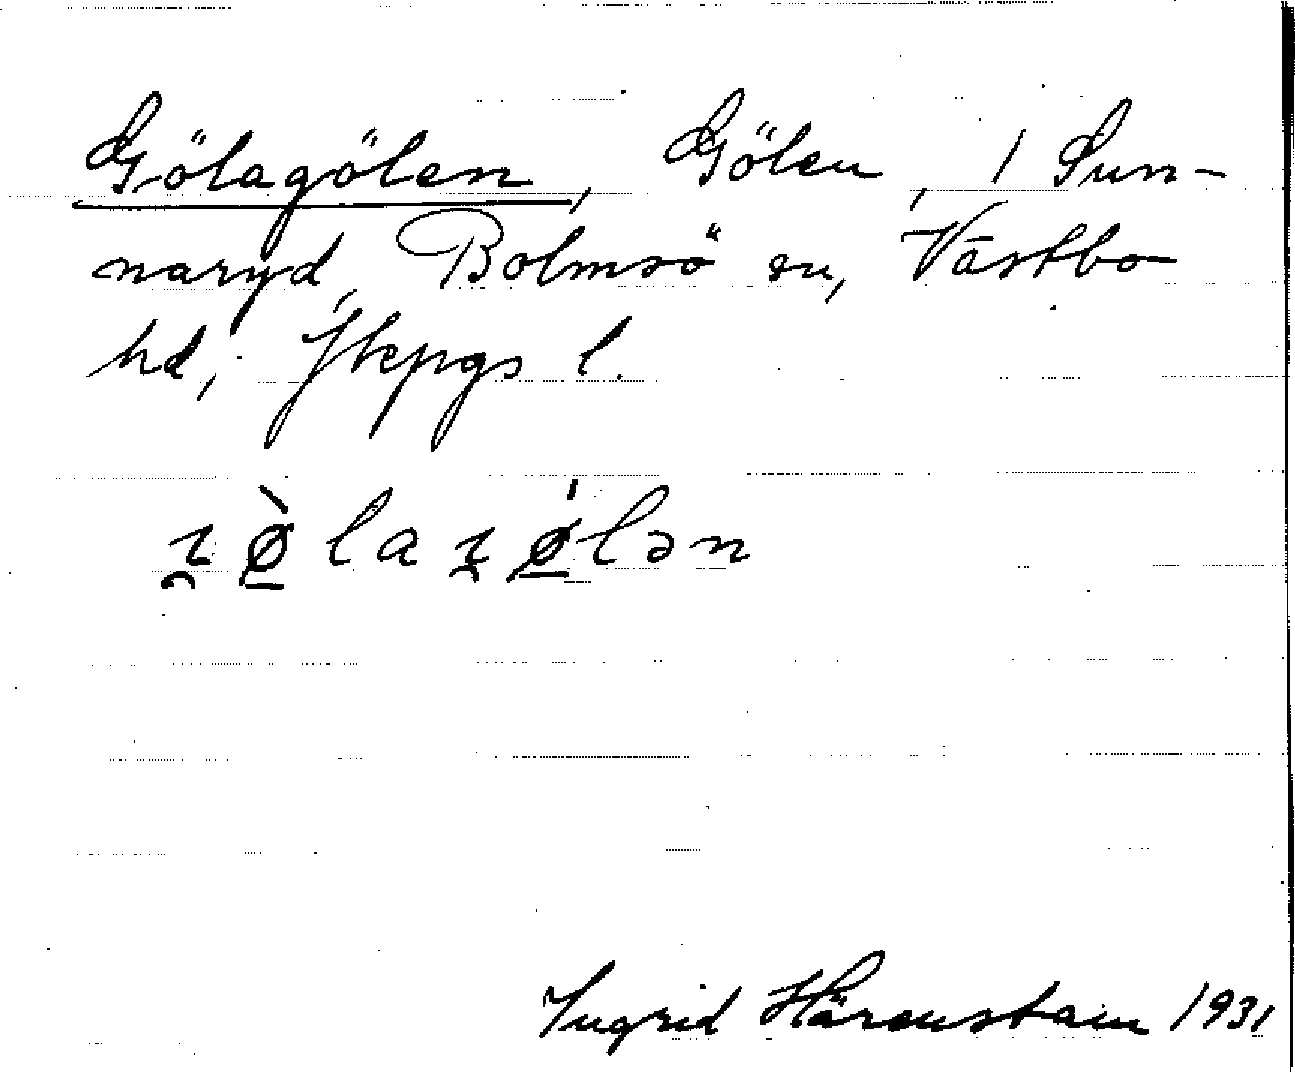 Gölagölen, Gölen, 1 Sun-
naryd, Bolmsö sn, Västbo
hd, Jkpgs l.
Ingrid Härenstam 1931